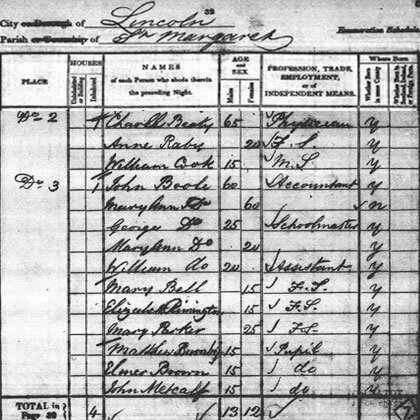 32
City or Borough of Lincoln
Parish or Township of St Margaret
Enumeration Schedule
PLACE HOUSES NAMES AGE and SEX PROFESSION, TRADE, EMPLOYMENT, or of INDEPENDENT MEANS. Where Born
Uninhabited or Building Inhabited of each Person who abode therein the preceding Night. Males Females Whether Born in same County
Do 2 1 Charles Beaty 65 Physician y
Anne Raby 20 F.S. y
William Cook 15 M.S. y
Do 3 1 John Boole 60 Accountant y
Mary Ann Do 60 n
George Do 25 Schoolmaster y
Mary Ann Do 20 y
William do 20 Assistant y
Mary Bell 15 F.S. y
Elizabeth Rimington 15 F.S. y
Mary Parker 25 F.S. y
Matthew Burnaby 15 Pupil y
Elmer Brown 15 do y
John Metcalf 15 do y
TOTAL in Page 32 4 13 12